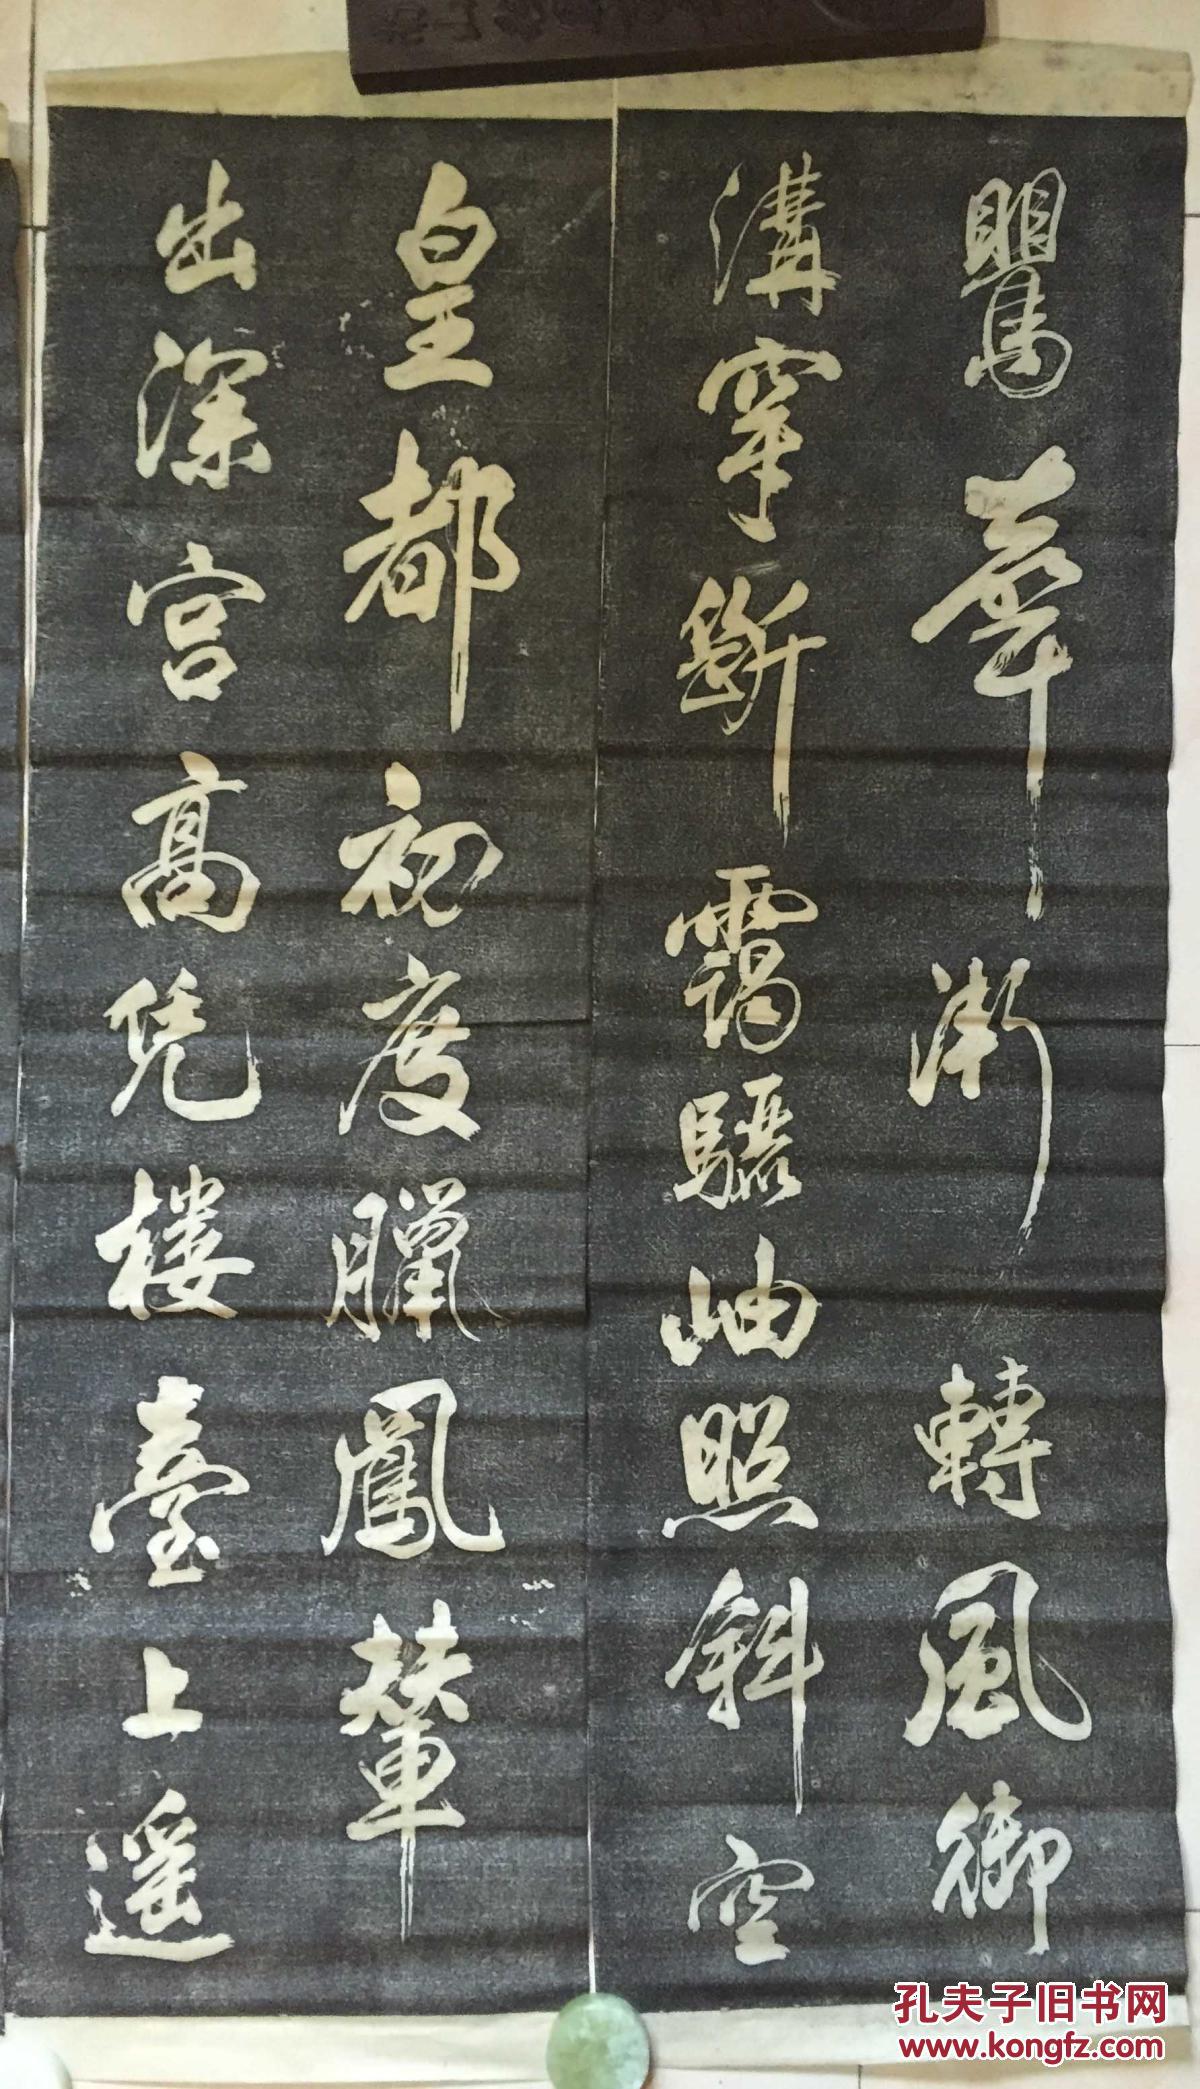 鸎聲漸轉風御
溝穿斷靄驪岫照斜空
皇都初度臘鳳輦
出深宮高凭樓臺上遙
孔夫子旧书网
www.kongfz.com